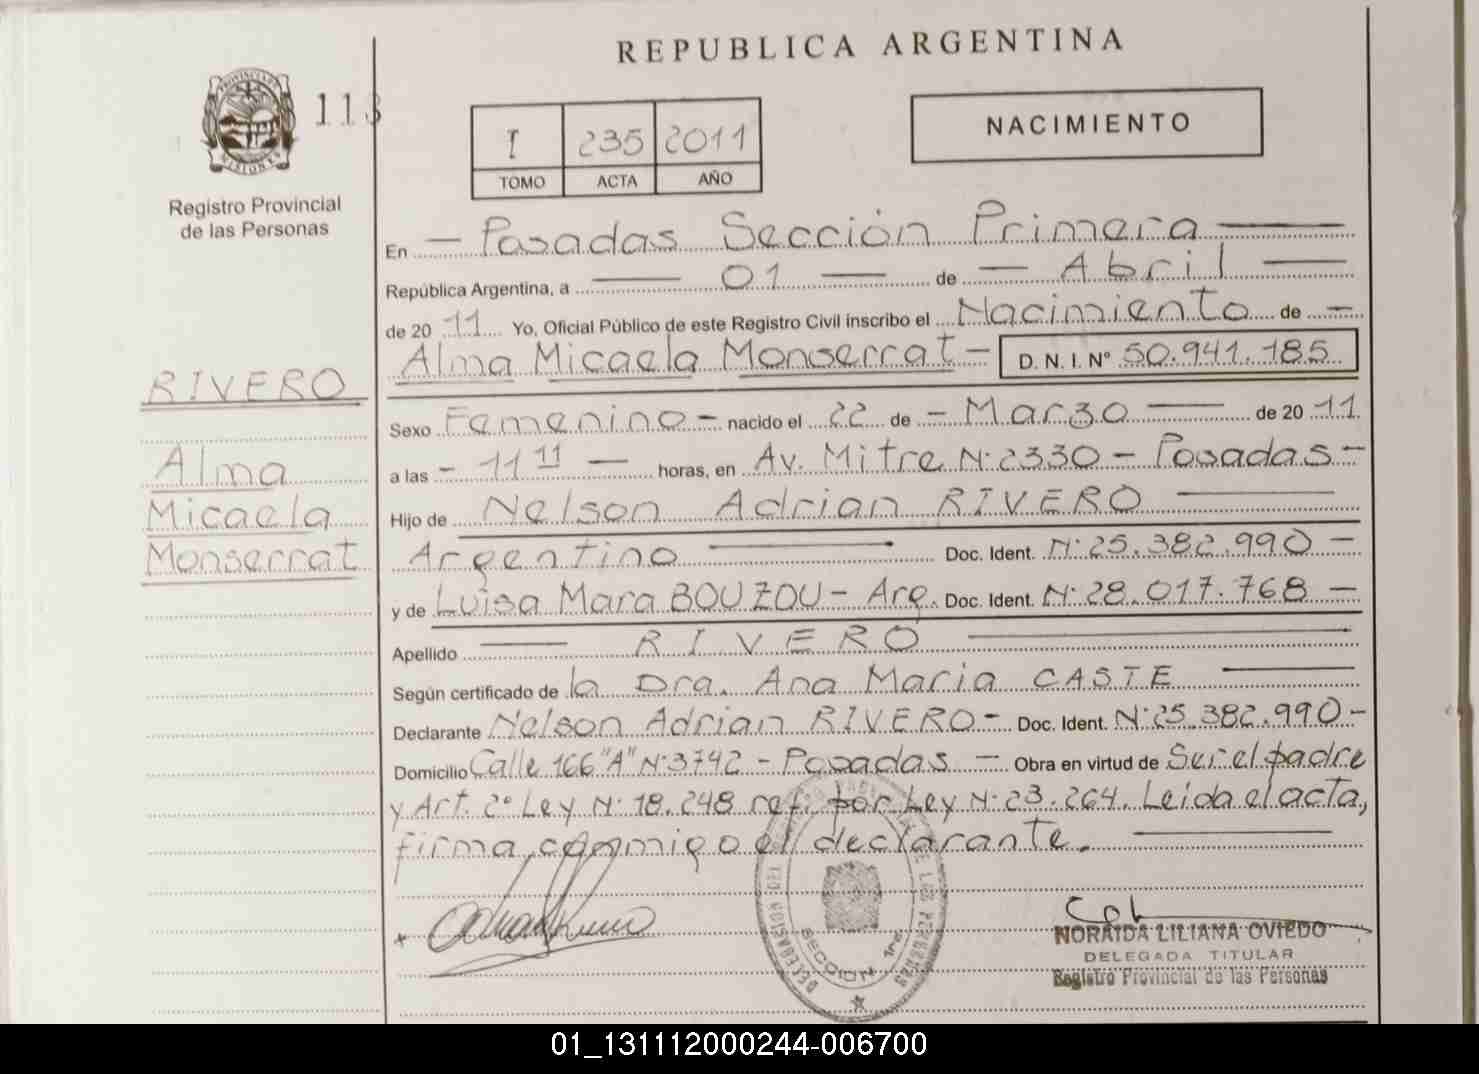 REPUBLICA ARGENTINA
113
I 235 2011
TOMO ACTA AÑO
NACIMIENTO
Registro Provincial
de las Personas
En Posadas Sección Primera
República Argentina, a 01 de Abril
de 20 11 Yo, Oficial Público de este Registro Civil inscribo el Nacimiento de
Alma Micaela Monserrat D. N. I. Nº 50.941.185
RIVERO
Alma
Micaela
Monserrat
Sexo Femenino nacido el 22 de Marzo de 20 11
a las 11 11 horas, en Av. Mitre Nº 2330 - Posadas
Hijo de Nelson Adrian RIVERO
Argentino Doc. Ident. Nº 25.382.990
y de Luisa Mara BOUZOU - Arg. Doc. Ident. Nº 28.017.768
Apellido RIVERO
Según certificado de la Dra. Ana Maria CASTE
Declarante Nelson Adrian RIVERO - Doc. Ident. Nº 25.382.990
Domicilio Calle 166 "A" Nº 3742 - Posadas - Obra en virtud de Ser el padre
y Art. 2º Ley Nº 18.248 ref. por Ley Nº 23.264. Leida el acta,
firma conmigo el declarante.
SECCION 1ra
NORAIDA LILIANA OVIEDO
DELEGADA TITULAR
Registro Provincial de las Personas
01_131112000244-006700